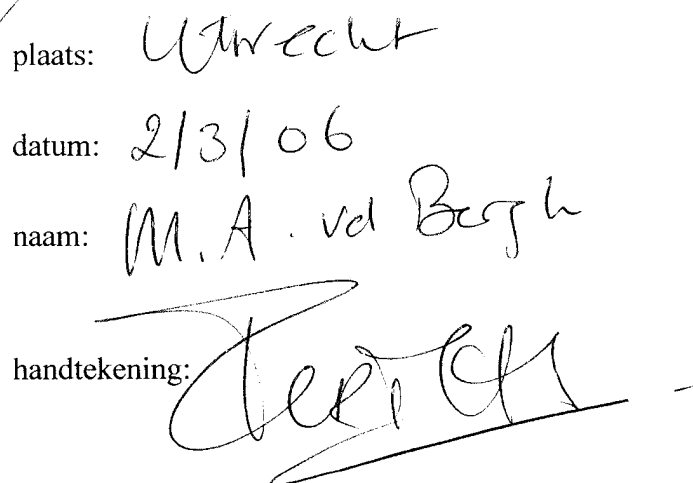 plaats: Utrecht
datum: 2/3/06
naam: M.A. vd Bergh
handtekening: